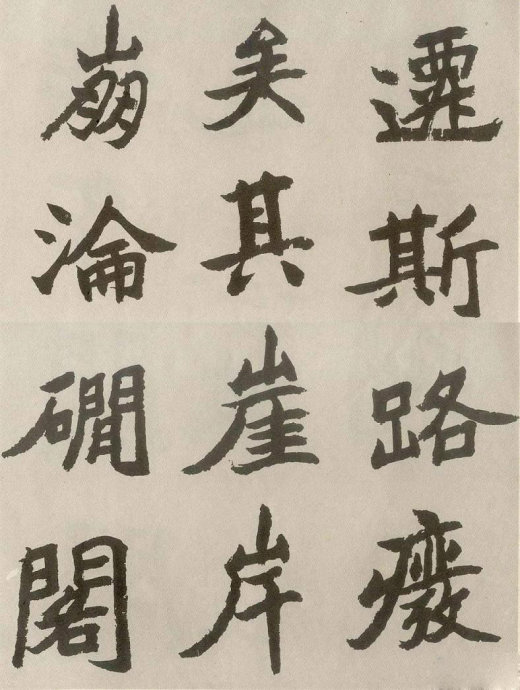 遷斯路癈
矣其崖岸
崩淪磵閣